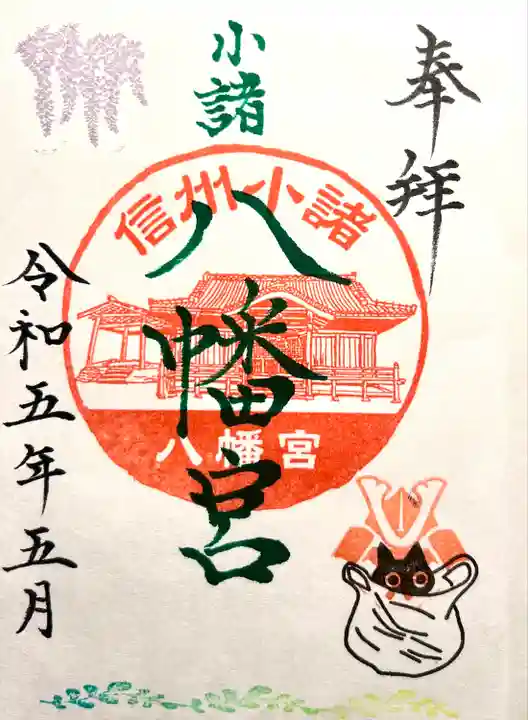 奉拝
小諸
八幡宮
信州小諸
八幡宮
令和五年五月